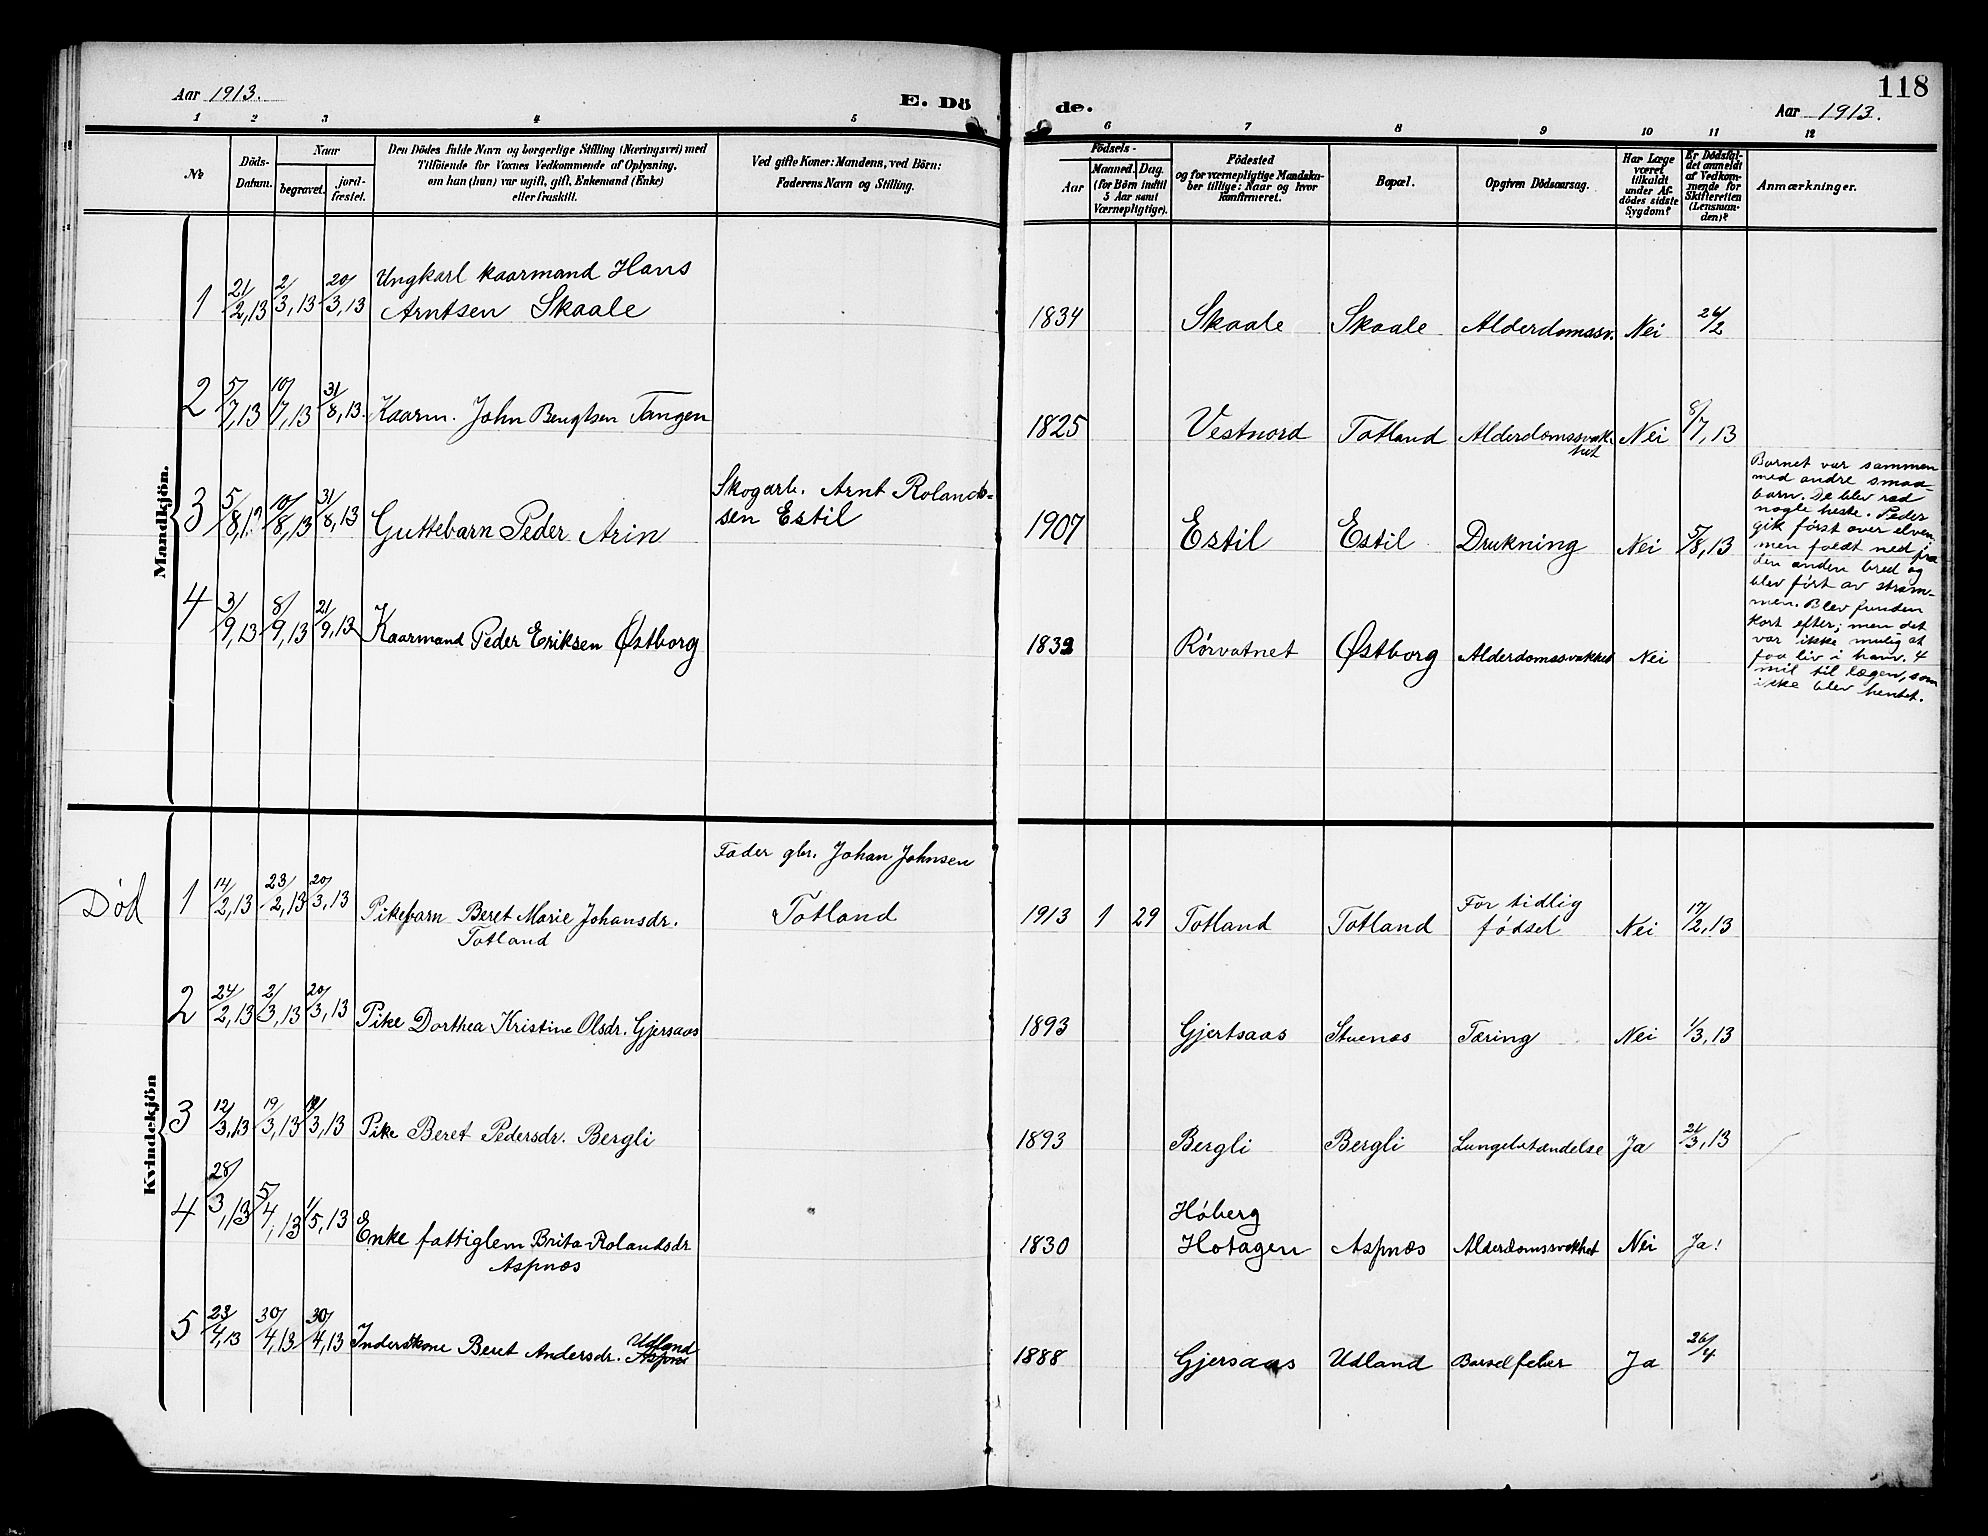 118
Aar 1913.
E. Dö
de.
Aar 1913.
1 2 3 4 5 6 7 8 9 10 11 12
No
Döds-
Datum.
Naar
begravet.
jord-
fæstet.
Den Dödes fulde Navn og borgerlige Stilling (Næringsvei) med
Tilföiende for Voxnes Vedkommende af Oplysning,
om han (hun) var ugift, gift, Enkemand (Enke)
eller fraskilt.
Ved gifte Koner: Mandens, ved Börn:
Faderens Navn og Stilling.
Födsels-
Aar
Maaned. Dag.
(for Börn indtil
5 Aar samt
Værnepligtige).
Födested
og for værnepligtige Mandska-
ber tillige: Naar og hvor
konfirmeret.
Bopæl.
Opgiven Dödsaarsag.
Har Læge
været
tilkaldt
under Af-
dödes sidste
Sygdom?
Er Dödsfal-
det anmeldt
af Vedkom-
mende for
Skifteretten
(Lensman-
den)?
Anmærkninger.
Mandkjön.
1 21/2,13 2/3,13 20/3,13 Ungkarl kaarmand Hans
Arntsen Skaale
1834 Skaale Skaale Alderdomssv. Nei 26/2
2 5/7,13 10/7,13 31/8,13. Kaarm. John Bengtsen Tangen
1825 Vestnord Totland Alderdomssvak-
het Nei 8/7,13
3 5/8,13 10/8,13 31/8,13 Guttebarn Peder Arin
Skogarb. Arnt Roland-
sen Estil
1907 Estil Estil Drukning Nei 5/8,13
Barnet var sammen
med andre smaa-
barn. De blev ræd
nogle heste. Peder
gik först over elven,
men faldt ned fra
den anden bred og
blev fört av ström-
men. Blev funden
kort efter; men det
var ikke mulig at
faa liv i ham. 4
mil til lægen, som
ikke blev hentet.
4 3/9,13 8/9,13 21/9,13 Kaarmand Peder Eriksen Østborg
1832 Rørvatnet Østborg Alderdomssvakhet Nei
Kvindekjön
Død
1 14/2,13 23/2,13 20/3,13 Pikebarn Beret Marie Johansdr.
Totland
Fader gbr. Johan Johnsen
Totland
1913 1 29 Totland Totland For tidlig
fødsel Nei 17/2,13
2 24/2,13 2/3,13 20/3,13 Pike Dorthea Kristine Olsdr. Gjersaas
1893 Gjertsaas Stuenæs Tæring Nei 1/3,13
3 12/3,13 19/3,13 19/3,13 Pike Beret Pedersdr. Bergli
1893 Bergli Bergli Lungebetændelse Ja 21/3,13
4 28/3,13 5/4,13 1/5,13 Enke fattiglem Brita Rolandsdr
Aspnæs
1830 Høberg
Hotagen Aspnæs Alderdomssvakhet Nei Ja!
5 23/4,13 30/4,13 30/4,13 Inderskone Beret Andersdr. Udland
1888 Gjersaas Udland Barselfeber Ja 26/4